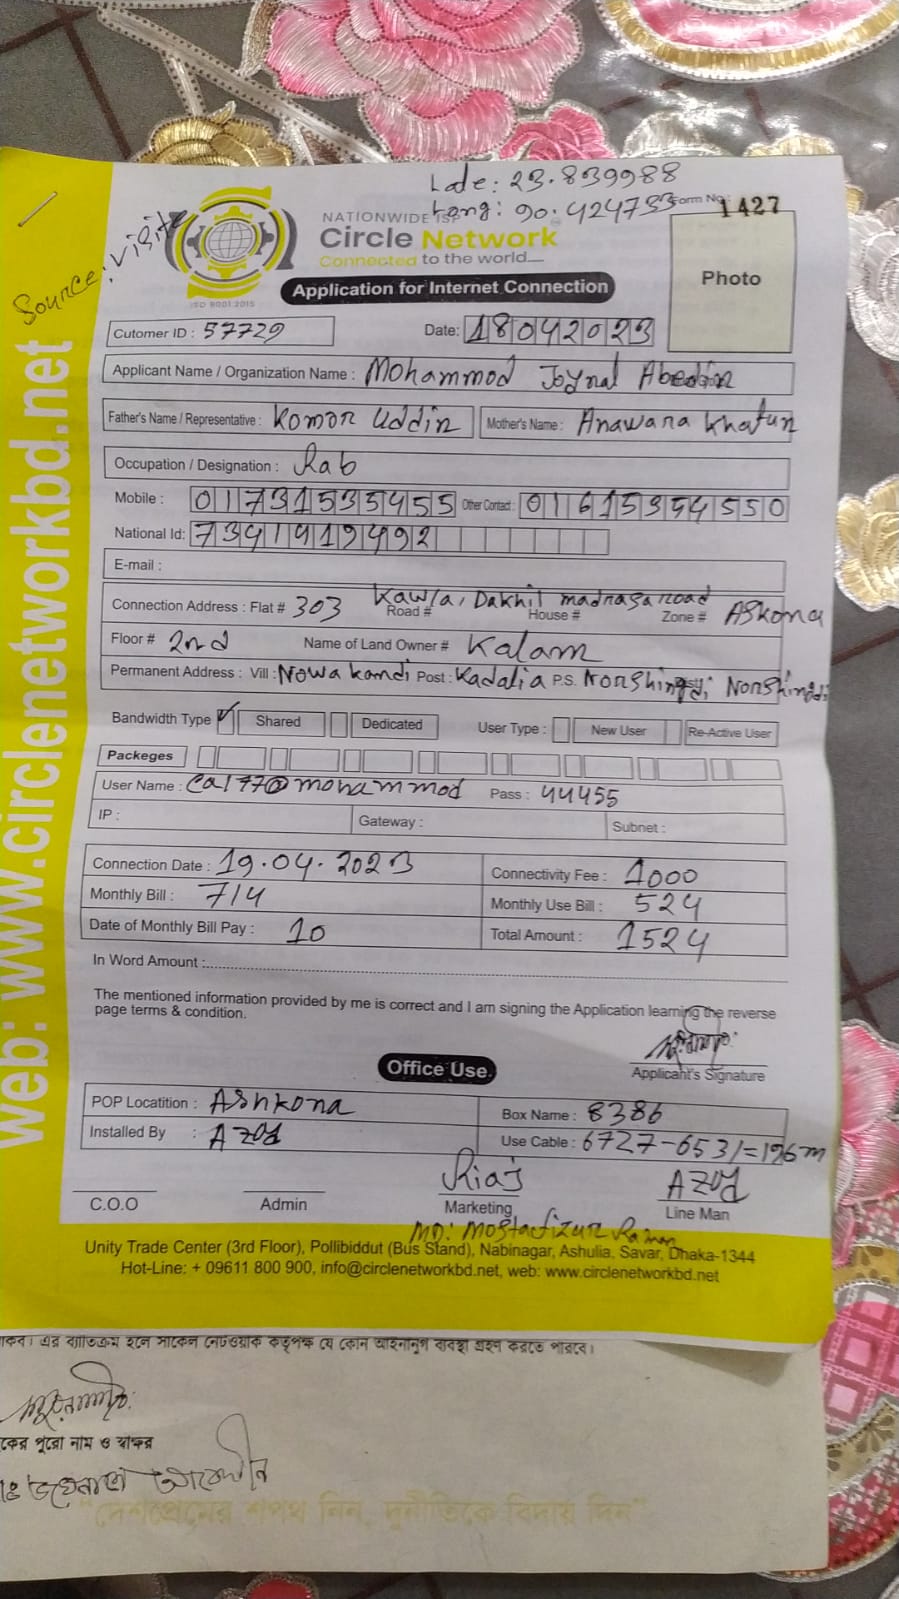 Late: 23.839988
Long: 90.424733
Form No: 1427
Source: visite
NATIONWIDE ISP
Circle Network
Connected to the world
ISO 9001:2015
Photo
Application for Internet Connection
Cutomer ID : 57729 Date: 18042023
Applicant Name / Organization Name : Mohammod Joynal Abedin
Father's Name / Representative : Komor Uddin Mother's Name : Anawara Khatun
Occupation / Designation : Rab
Mobile : 01731535455 Other Contact : 01615354550
National Id: 7341919492
E-mail :
Kawla, Dakhil madrasa road
Connection Address : Flat # 303 Road # House # Zone # Askona
Floor # 2nd Name of Land Owner # Kalam
Permanent Address : Vill : Nowa kandi Post : Kadalia P.S. Norshingdi, Norshingdi
Bandwidth Type ✓ Shared Dedicated User Type : New User Re-Active User
Packeges
User Name : Cal77@mohammod Pass : 44455
IP : Gateway : Subnet :
Connection Date : 19.04.2023 Connectivity Fee : 1000
Monthly Bill : 714 Monthly Use Bill : 524
Date of Monthly Bill Pay : 10 Total Amount : 1524
In Word Amount :
The mentioned information provided by me is correct and I am signing the Application learning the reverse
page terms & condition.
Applicant's Signature
Office Use.
POP Locatition : Ashkona Box Name : 8386
Installed By : Azad Use Cable : 6727-6531=196m
Riaj Azad
C.O.O Admin Marketing Line Man
MD: Mostafizur Raman
Unity Trade Center (3rd Floor), Pollibiddut (Bus Stand), Nabinagar, Ashulia. Savar, Dhaka-1344
Hot-Line: + 09611 800 900, info@circlenetworkbd.net, web: www.circlenetworkbd.net
web: www.circlenetworkbd.net
এর ব্যতিক্রম হলে সার্কেল নেটওয়ার্ক কর্তৃপক্ষ যে কোন আইনানুগ ব্যবস্থা গ্রহণ করতে পারবে।
পুরো নাম ও স্বাক্ষর
জয়নাল আবেদীন
“দেশপ্রেমের শপথ নিন, দুর্নীতিকে বিদায় দিন”